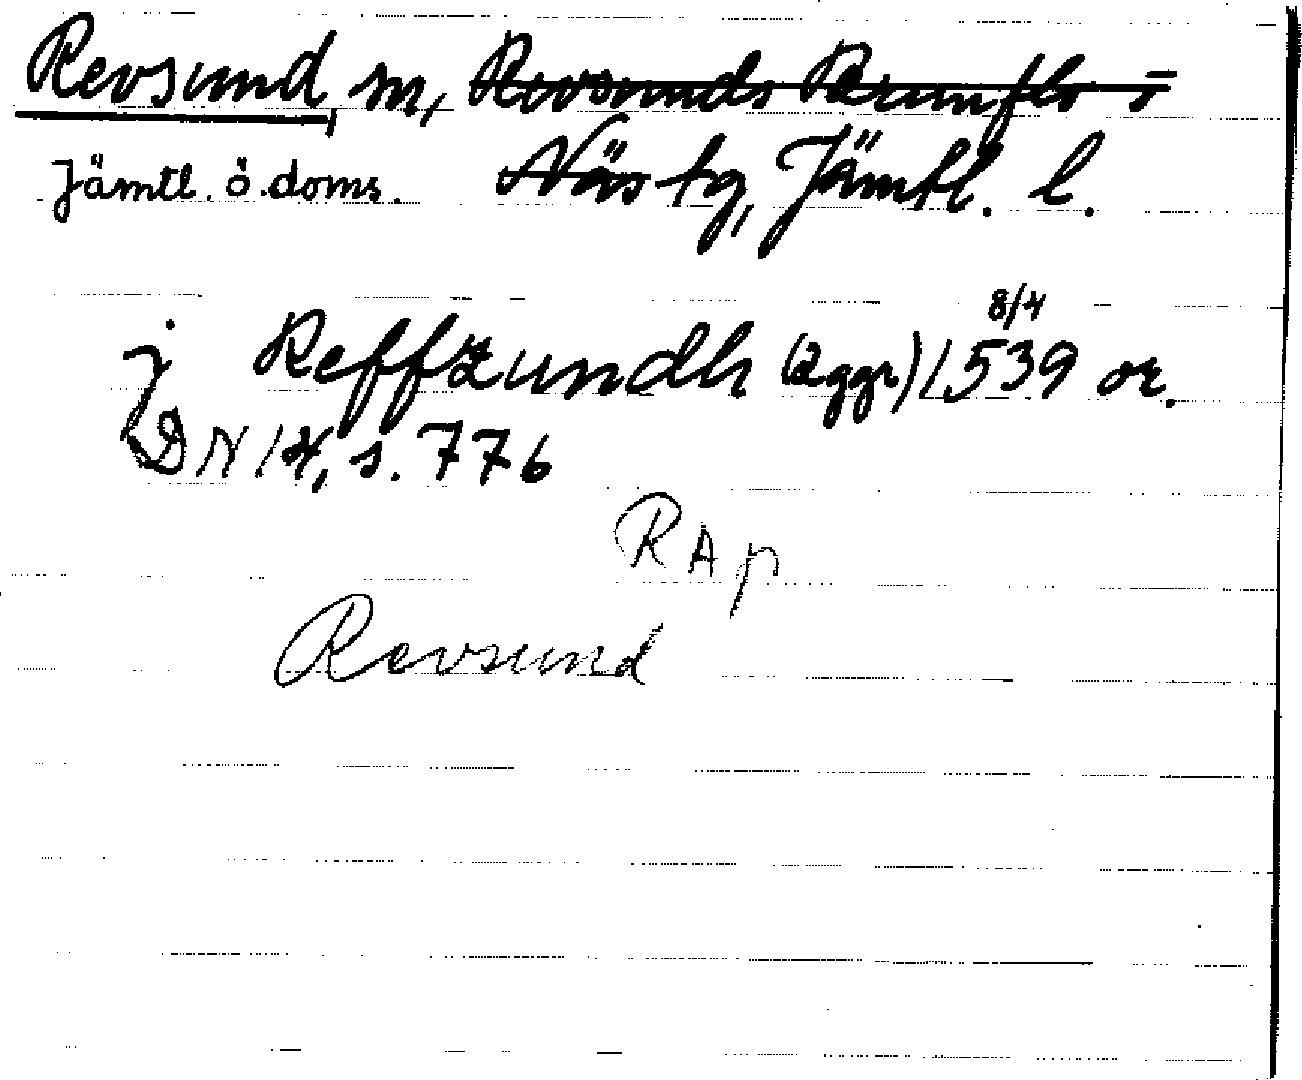 Revsund, sn, Revsunds Brunflo o
Jämtl. ö. doms. Näs tg, Jämtl. l.
j Reffzundh (2 ggr) 8/4 1539 or.
DN 14, s. 776
RAp
Revsund